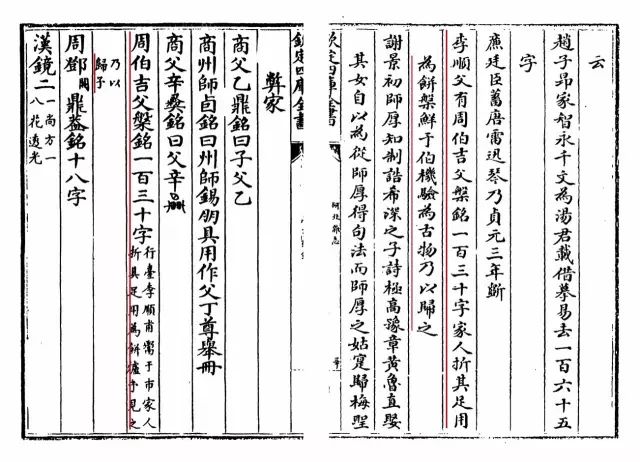 云
趙子昂家智永千文為湯君載借摹易去一百六十五
字
廉廷臣蓄唐雷迅琴乃貞元三年斵
李順父有周伯吉父槃銘一百三十字家人折其足用
為餅槃鮮于伯機驗為古物乃以歸之
謝景初師厚知制誥希深之子詩極高豫章黃魯直娶
其女自以為從師厚得句法而師厚之姑寔歸梅聖
欽定四庫全書
研北雜志
欽定四庫全書
弊家
商父乙鼎銘曰子父乙
商州師卣銘曰州師錫朋具用作父丁尊舉冊
商父辛彝銘曰父辛
周伯吉父槃銘一百三十字
行臺李順甫鬻于市家人
折其足用為餅爐予見之
乃以
歸予
周鄧闕鼎蓋銘十八字
漢鏡二
一尚方一
八花透光